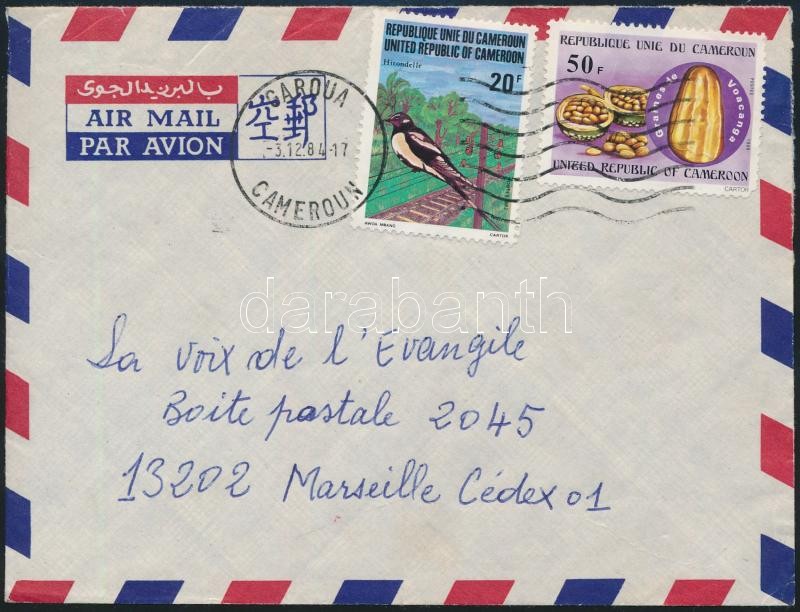 بالبريد الجوى
AIR MAIL
PAR AVION
郵空
GAROUA
-3.12.84-17
CAMEROUN
REPUBLIQUE UNIE DU CAMEROUN
UNITED REPUBLIC OF CAMEROON
Hirondelle
20F
CARTOR
REPUBLIQUE UNIE DU CAMEROUN
50F
Graines de
Voacanga
UNITED REPUBLIC OF CAMEROON
CARTOR
darabanth
La voix de l'Evangile
Boite postale 2045
13202 Marseille Cédex 01